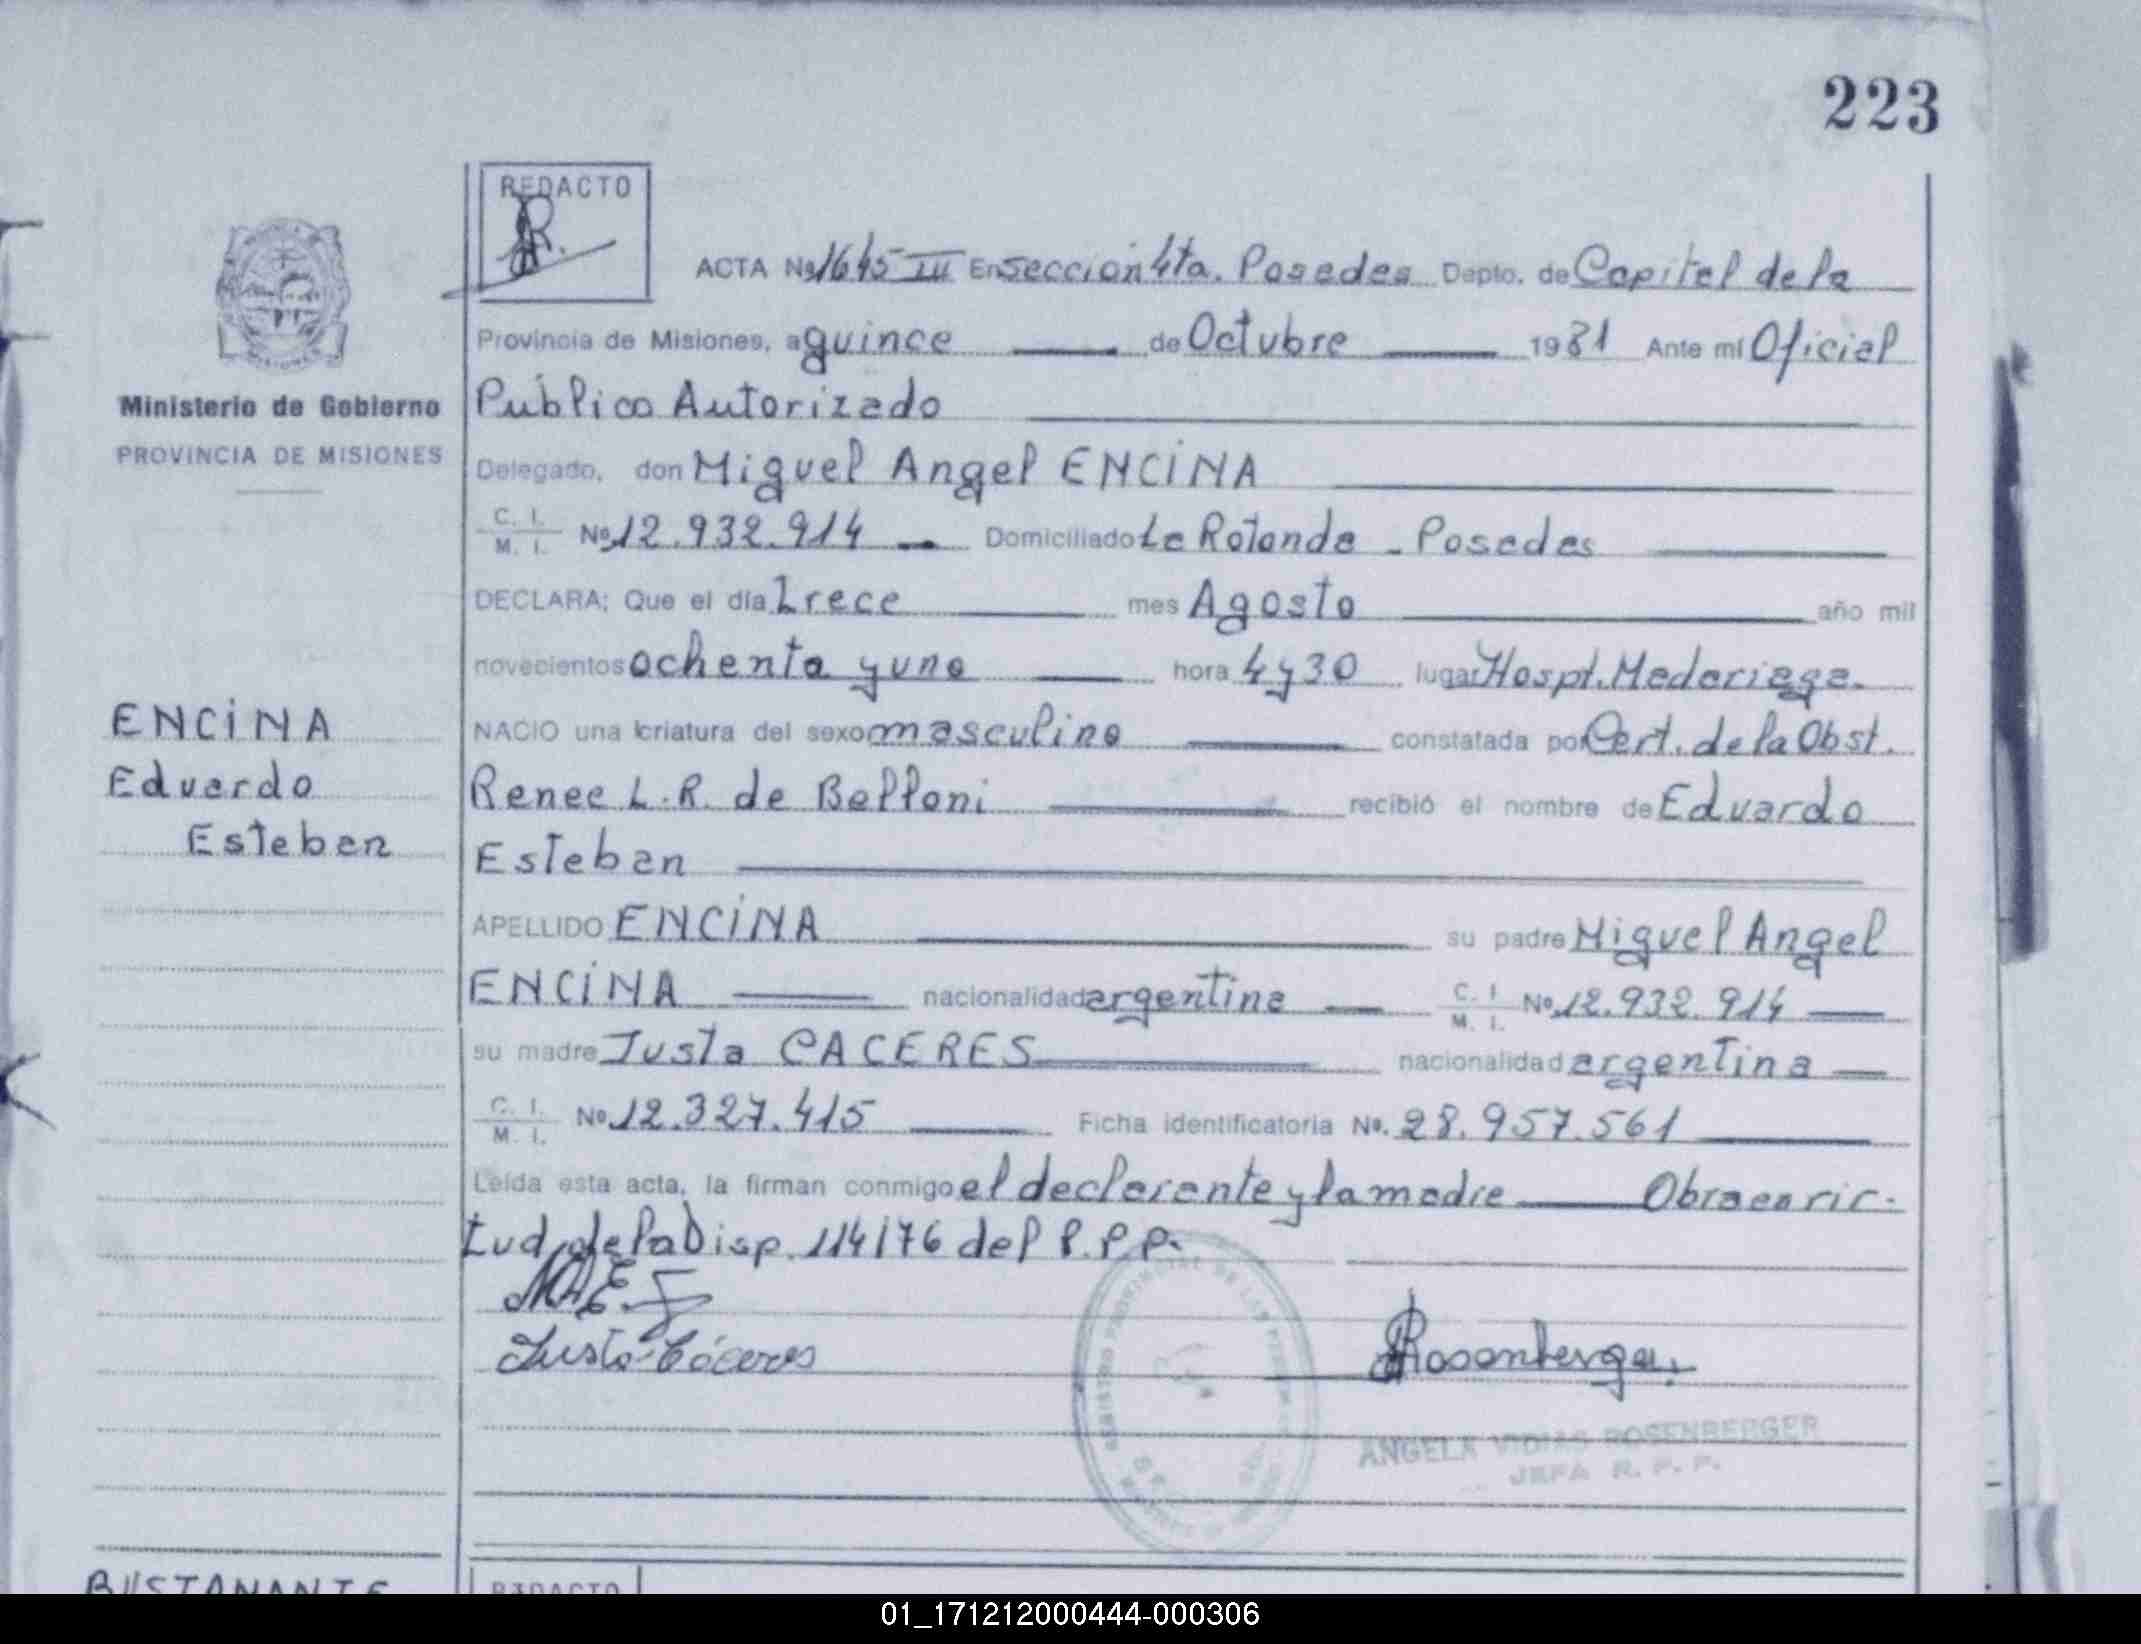 223
REDACTO
ACTA Nº 1645 III En Sección 4ta. Posadas Depto. de Capital de la
Provincia de Misiones, a quince de Octubre 1981 Ante mí Oficial
Público Autorizado
Ministerio de Gobierno
PROVINCIA DE MISIONES
Delegado, don Miguel Angel ENCINA
C. I. M. I. Nº 12.932.914 Domiciliado La Rotonda - Posadas
DECLARA: Que el día Trece mes Agosto año mil
novecientos ochenta y uno hora 4 y 30 lugar Hospt. Madariaga.
ENCINA
Eduardo
Esteban
NACIO una criatura del sexo masculino constatada por Cert. de la Obst.
Renee L. R. de Belloni recibió el nombre de Eduardo
Esteban
APELLIDO ENCINA su padre Miguel Angel
ENCINA nacionalidad argentina C. I. M. I. Nº 12.932.914
su madre Justa CACERES nacionalidad argentina
C. I. M. I. Nº 12.327.415 Ficha identificatoria Nº. 28.957.561
Leída esta acta, la firman conmigo el declarante y la madre Obra en vir-
tud de la Disp. 114/76 del R.P.P.
Justa Cáceres
Rosenberger
ANGELA ROSENBERGER
JEFA R. P. P.
BUSTAMANTE
REDACTO
01_171212000444-000306